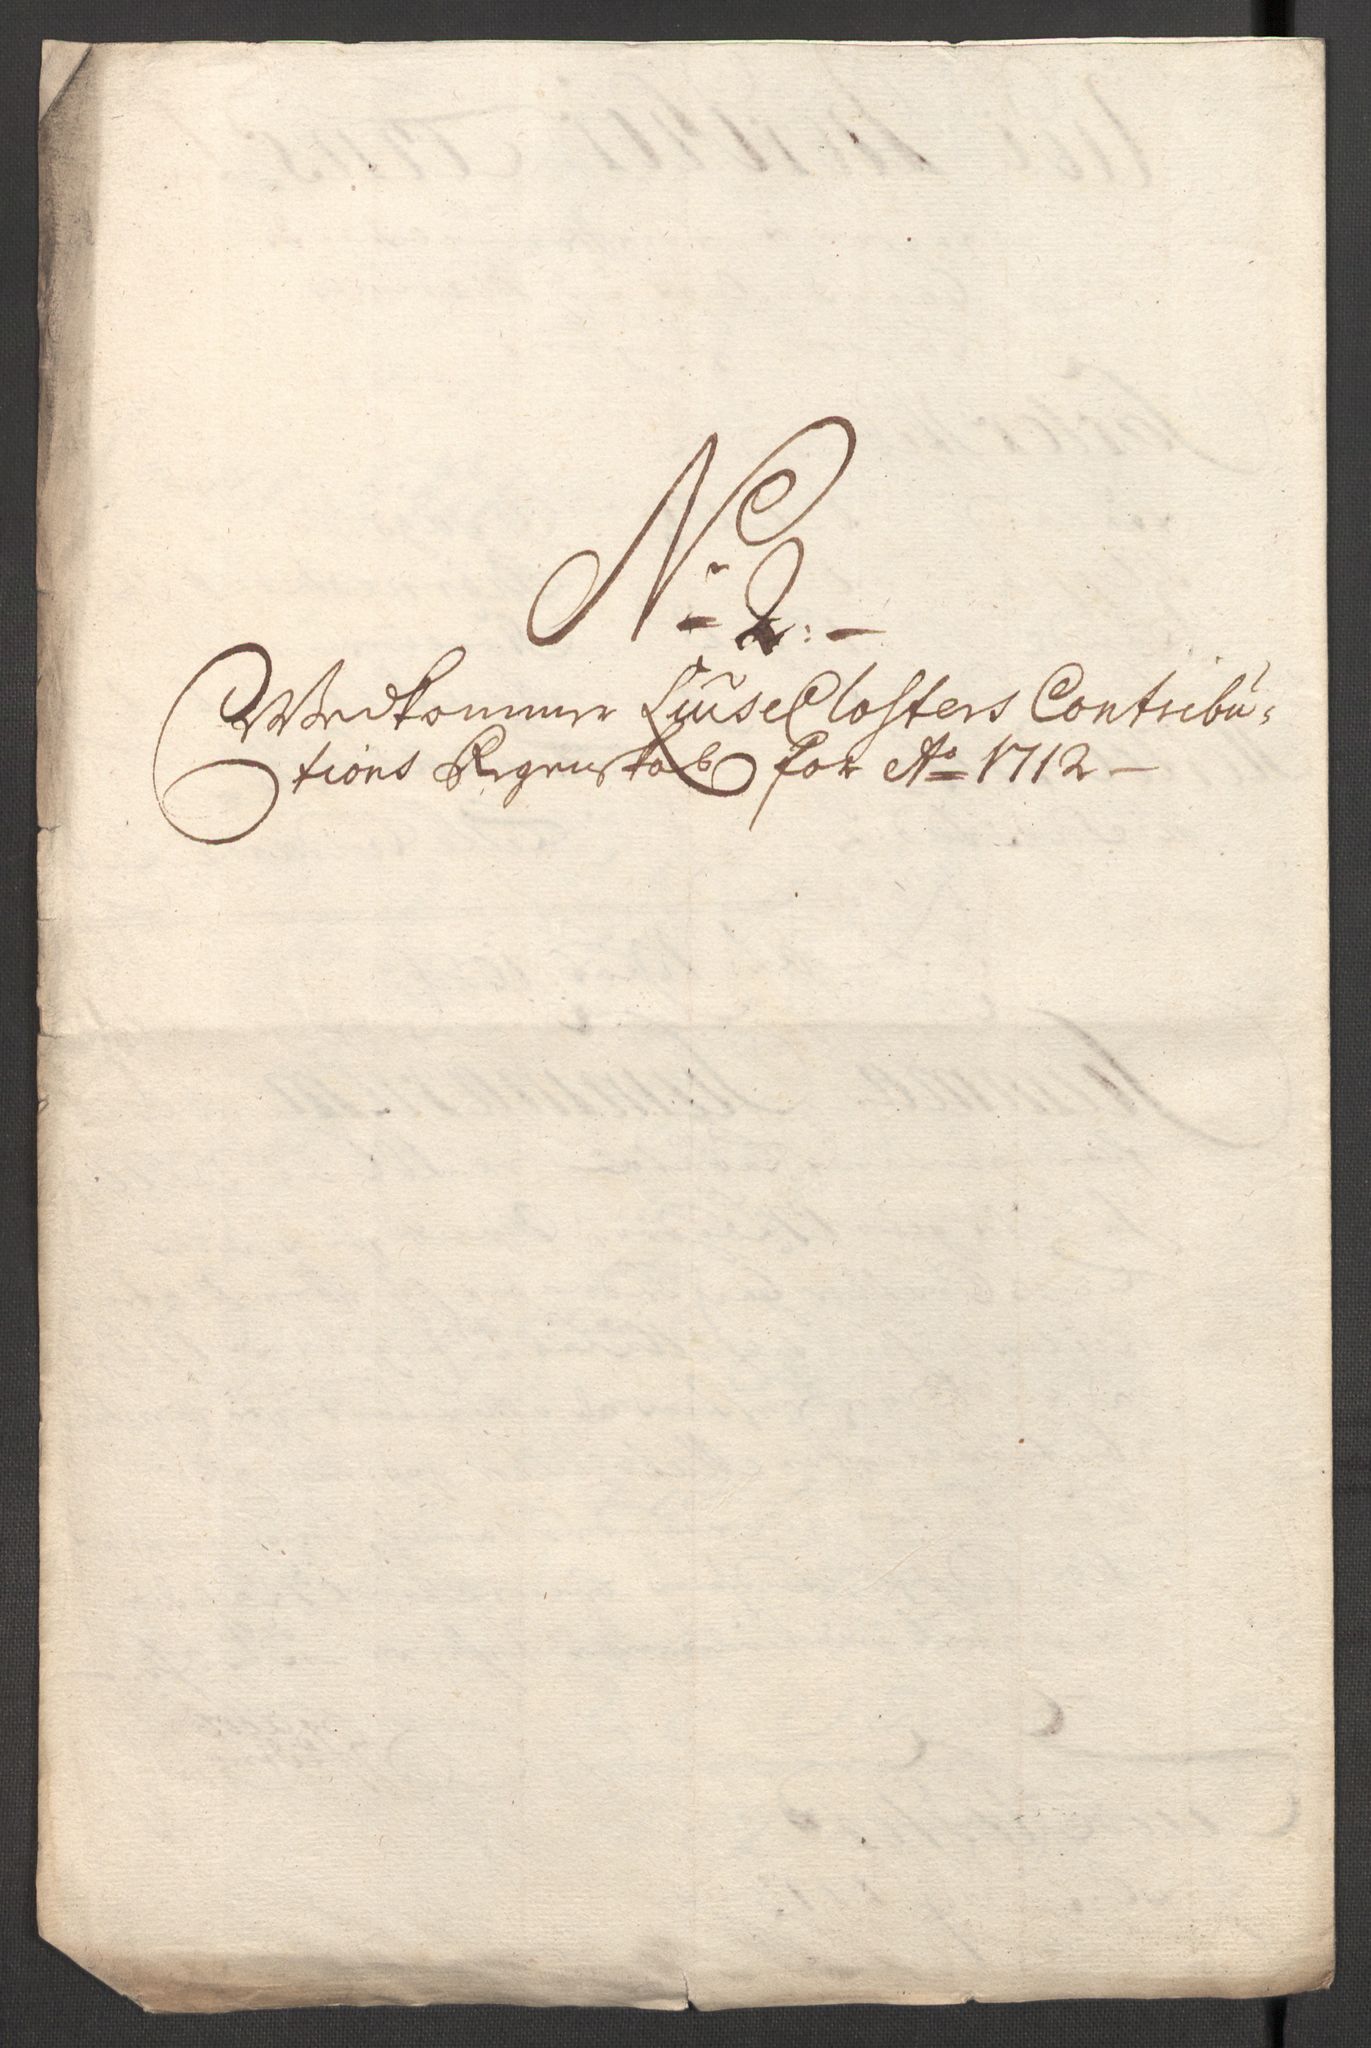 No 2:
Vedkommer Lÿse Closters Contribu-
tions Regenskab for Ao 1712